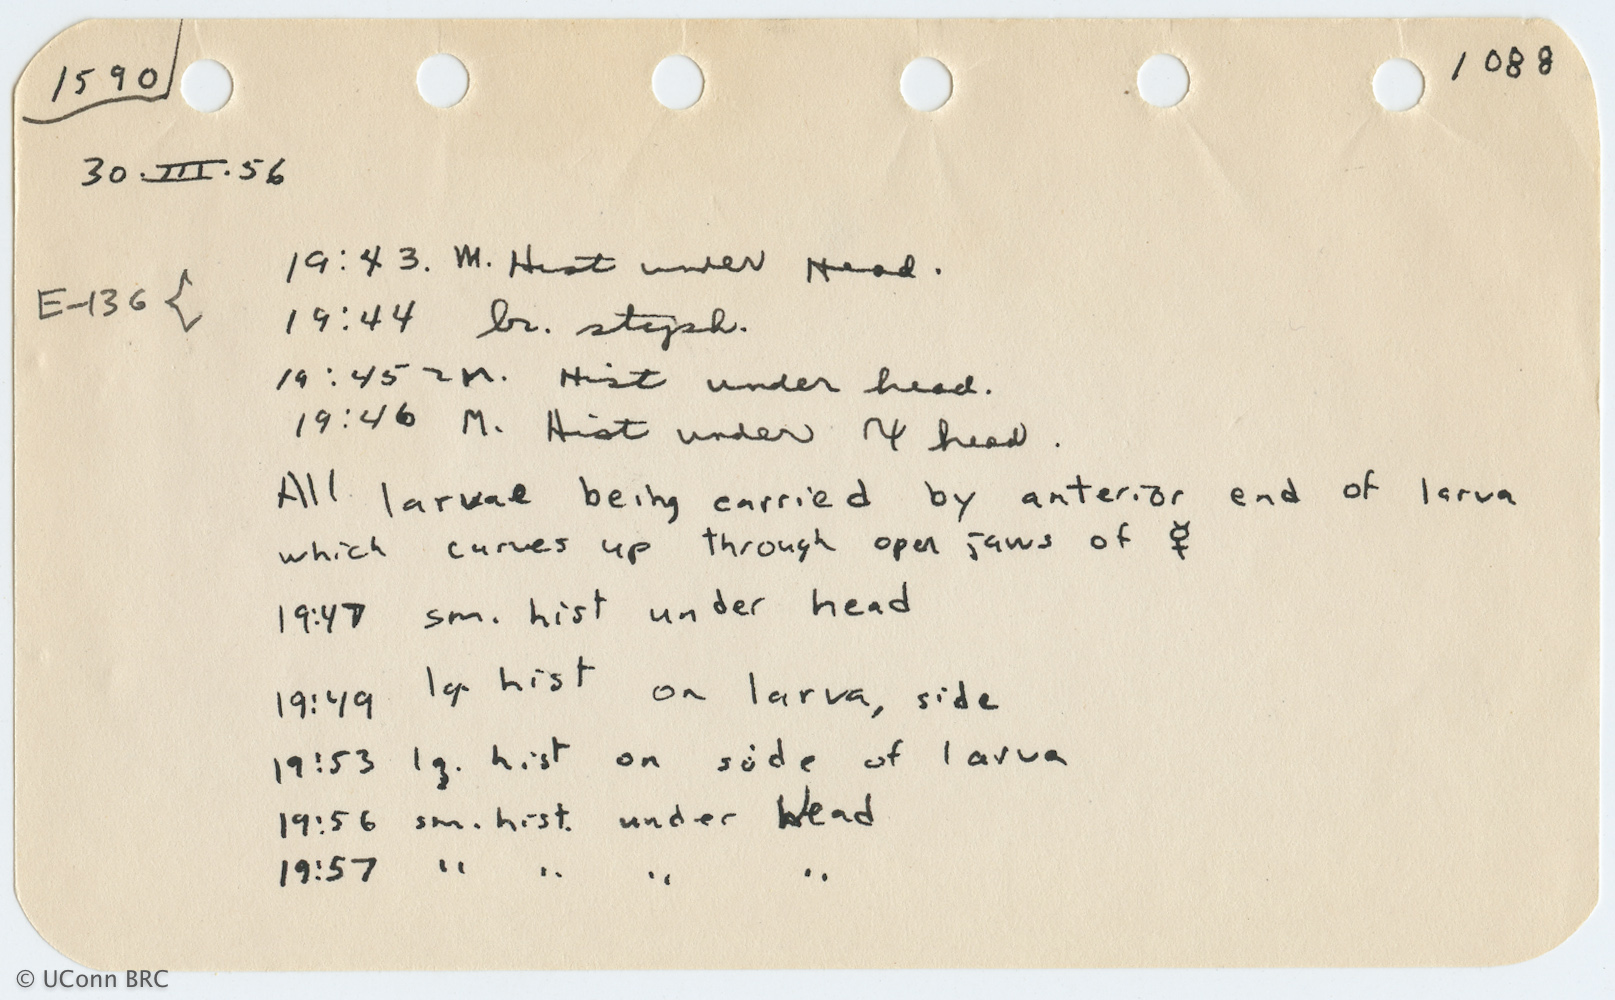 1590
1088
30.III.56
E-136 {
19:43. M. Hist under Head.
19:44 br. staph.
19:45 M. Hist under head.
19:46 M. Hist under head.
All larvae being carried by anterior end of larva
which curves up through open jaws of ☿
19:47 sm. hist under head
19:49 lg. hist on larva, side
19:53 lg. hist on side of larva
19:56 sm. hist. under head
19:57 " " " "
© UConn BRC